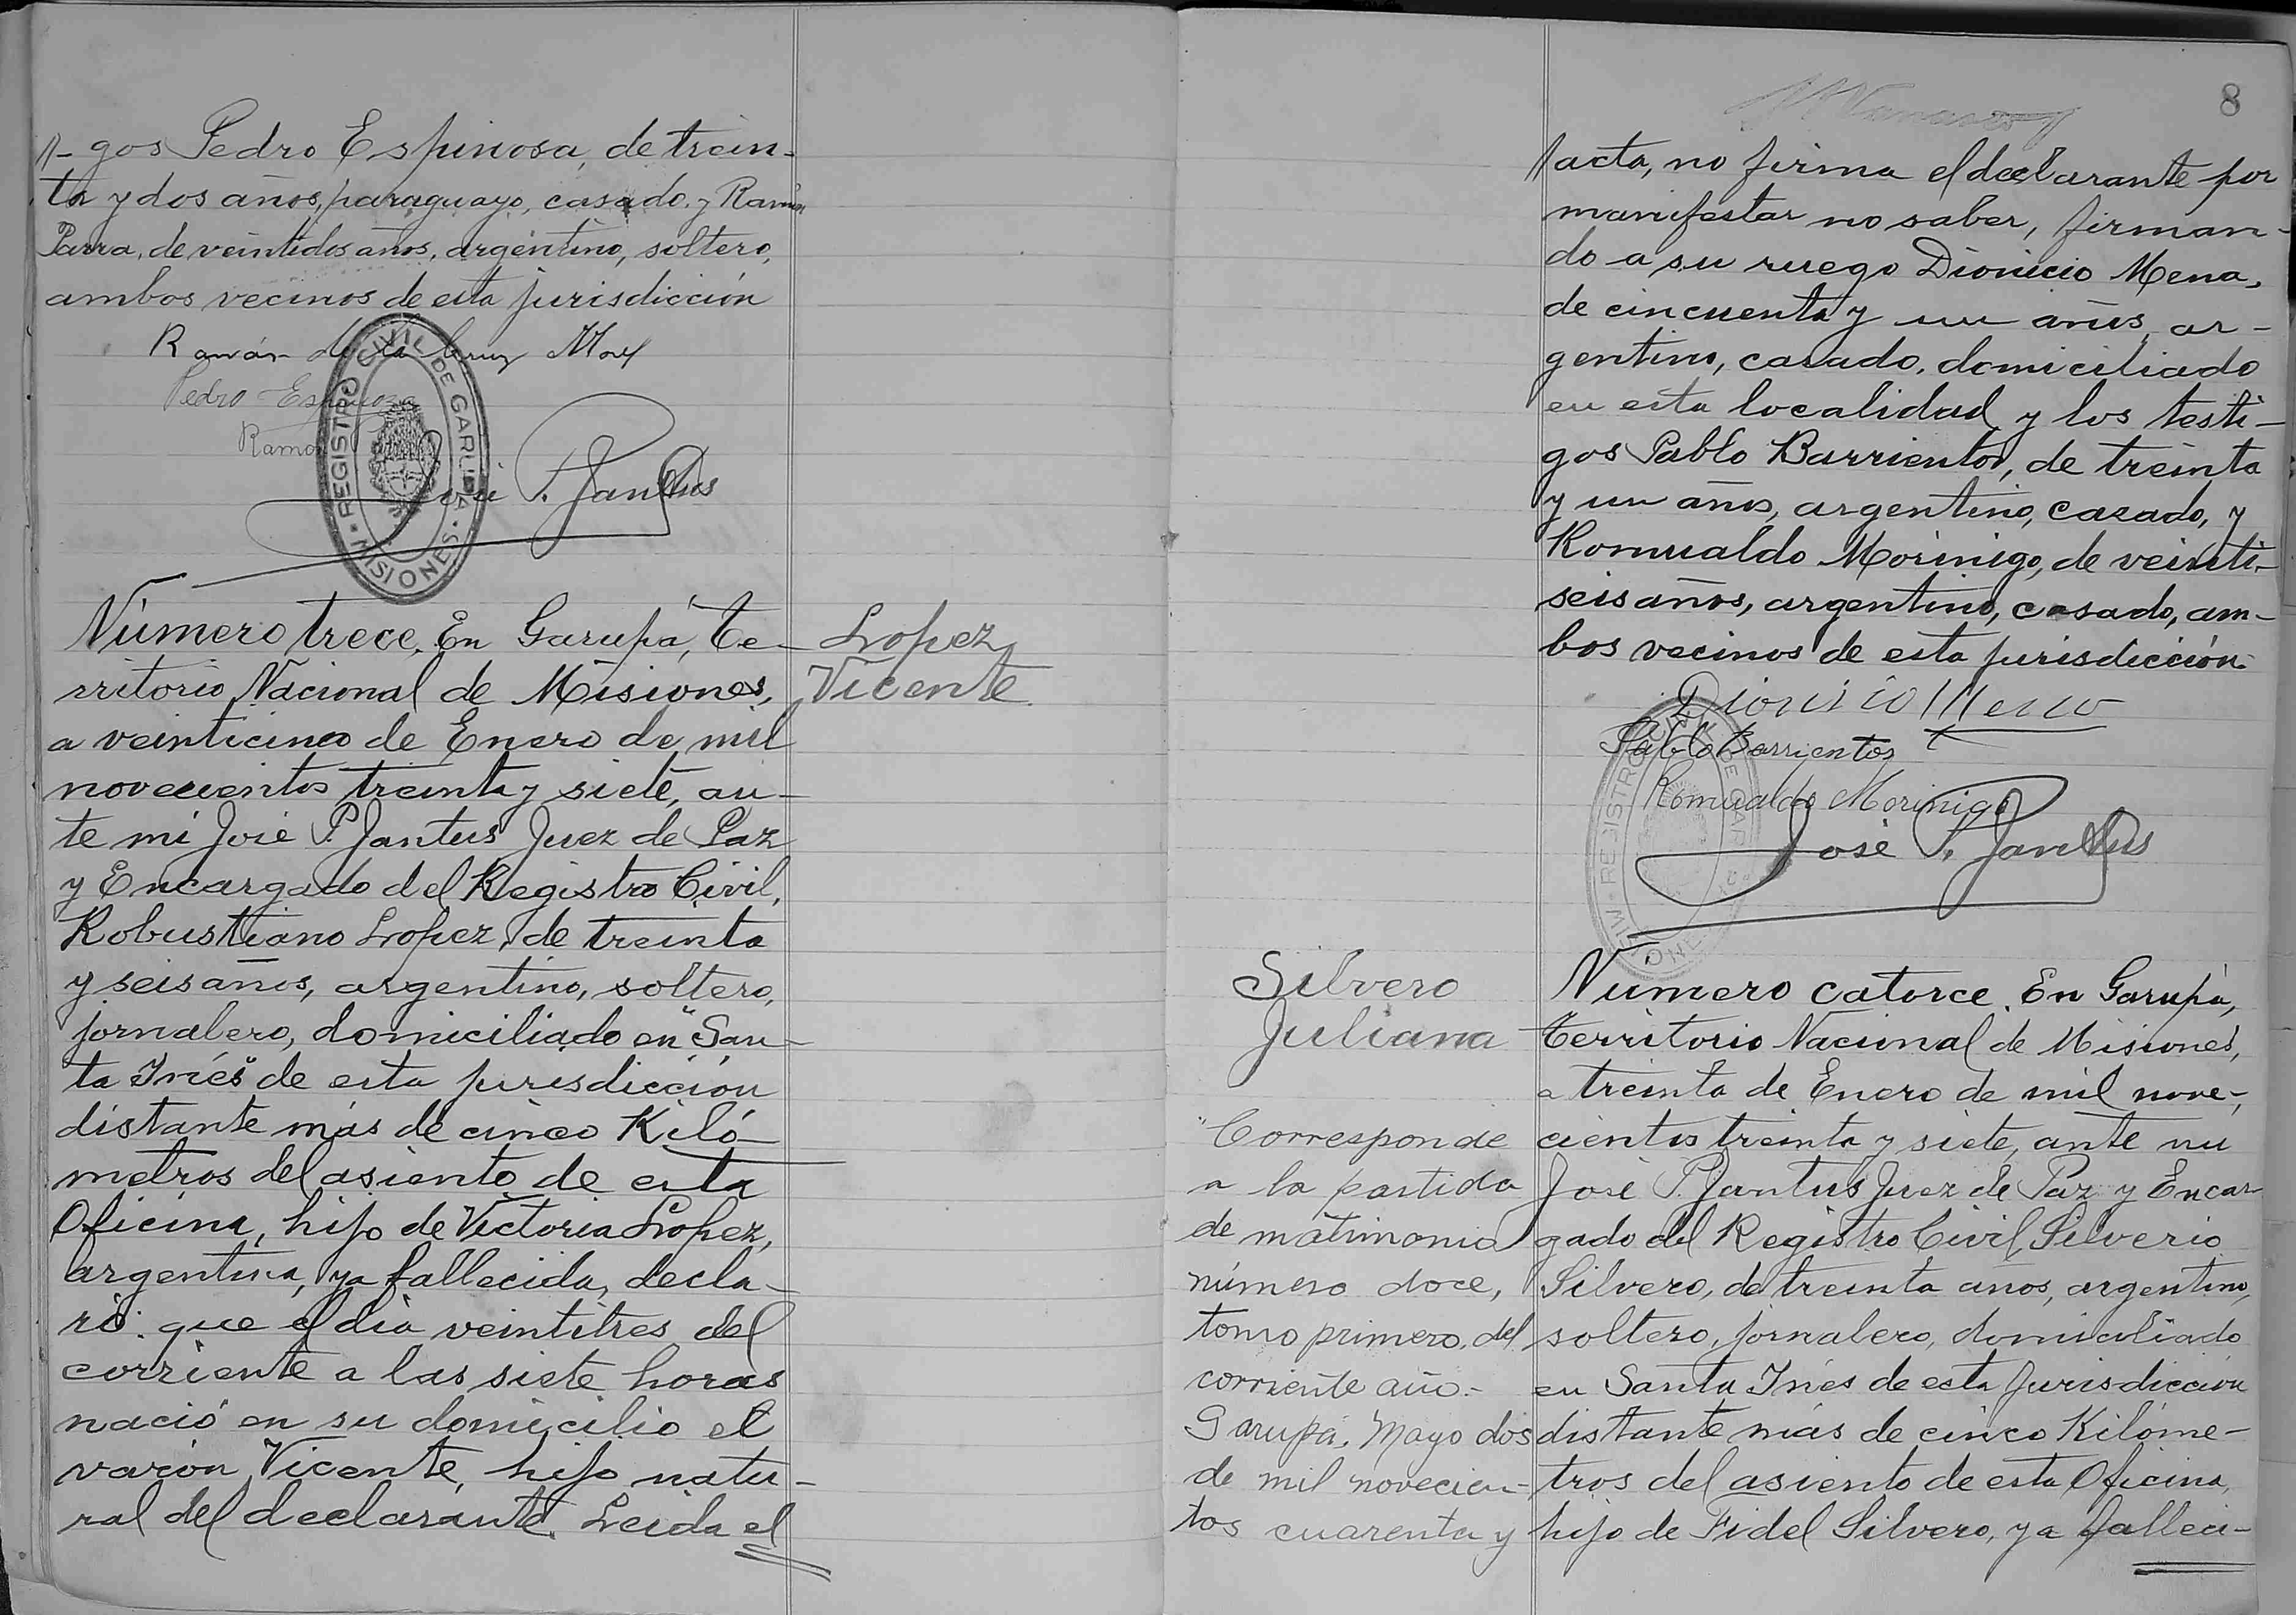 gos Pedro Espinosa, de trein-
ta y dos años, paraguayo, casado, y Ramón
Parra, de veintidos años, argentino, soltero,
ambos vecinos de esta jurisdicción
Ramón de la Cruz
Pedro Espinoza
Ramón
José P. Jantus
REGISTRO CIVIL DE GARUPA
MISIONES
Número trece. En Garupá, Te-
rritorio Nacional de Misiones,
a veinticinco de Enero de mil
novecientos treinta y siete, an-
te mi José P. Jantus Juez de Paz
y Encargado del Registro Civil,
Robustiano Lopez, de treinta
y seis años, argentino, soltero,
jornalero, domiciliado en "San-
ta Inés" de esta jurisdicción
distante más de cinco Kiló-
metros del asiento de esta
Oficina, hijo de Victoria Lopez,
argentina, ya fallecida, decla-
ró: que el dia veintitres del
corriente a las siete horas
nació en su domicilio el
varón Vicente, hijo natu-
ral del declarante. Leida el
Lopez
Vicente
8
acta, no firma el declarante por
manifestar no saber, firman-
do a su ruego Dionicio Mena,
de cincuenta y un años, ar-
gentino, casado, domiciliado
en esta localidad y los testi-
gos Pablo Barrientos, de treinta
y un años, argentino, casado, y
Romualdo Morinigo, de veinti-
seis años, argentino, casado, am-
bos vecinos de esta jurisdicción.
Dionicio Meno
Pablo Barrientos
Romualdo Morinigo
José P. Jantus
Silvero
Juliana
Corresponde
a la partida
de matrimonio
número doce,
tomo primero, del
corriente año.-
Garupá, Mayo dos
de mil novecien-
tos cuarenta y
Número catorce. En Garupá,
Territorio Nacional de Misiones,
a treinta de Enero de mil nove-
cientos treinta y siete, ante mi
José P. Jantus Juez de Paz y Encar-
gado del Registro Civil, Silverio
Silvero, de treinta años, argentino,
soltero, jornalero, domiciliado
en Santa Inés de esta Jurisdicción
distante más de cinco Kilóme-
tros del asiento de esta Oficina,
hijo de Fidel Silvero, ya falleci-